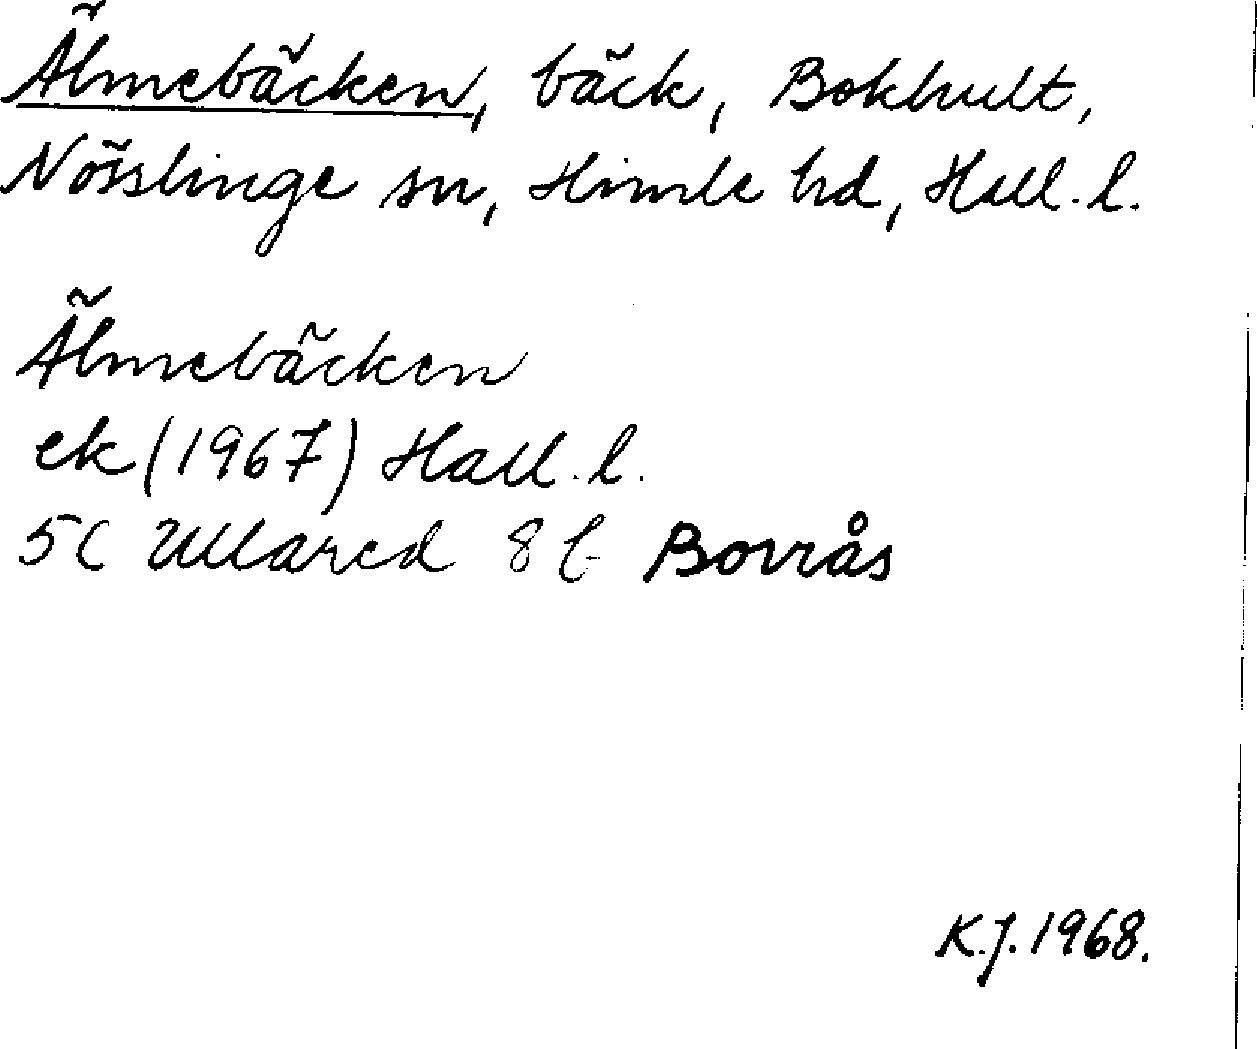 Älmebäcken, bäck, Bokhult,
Nösslinge sn, Himle hd, Hall. l.
Älmebäcken
ek (1967) Hall. l.
5C Ullared 8 f Borrås
K.J. 1968.